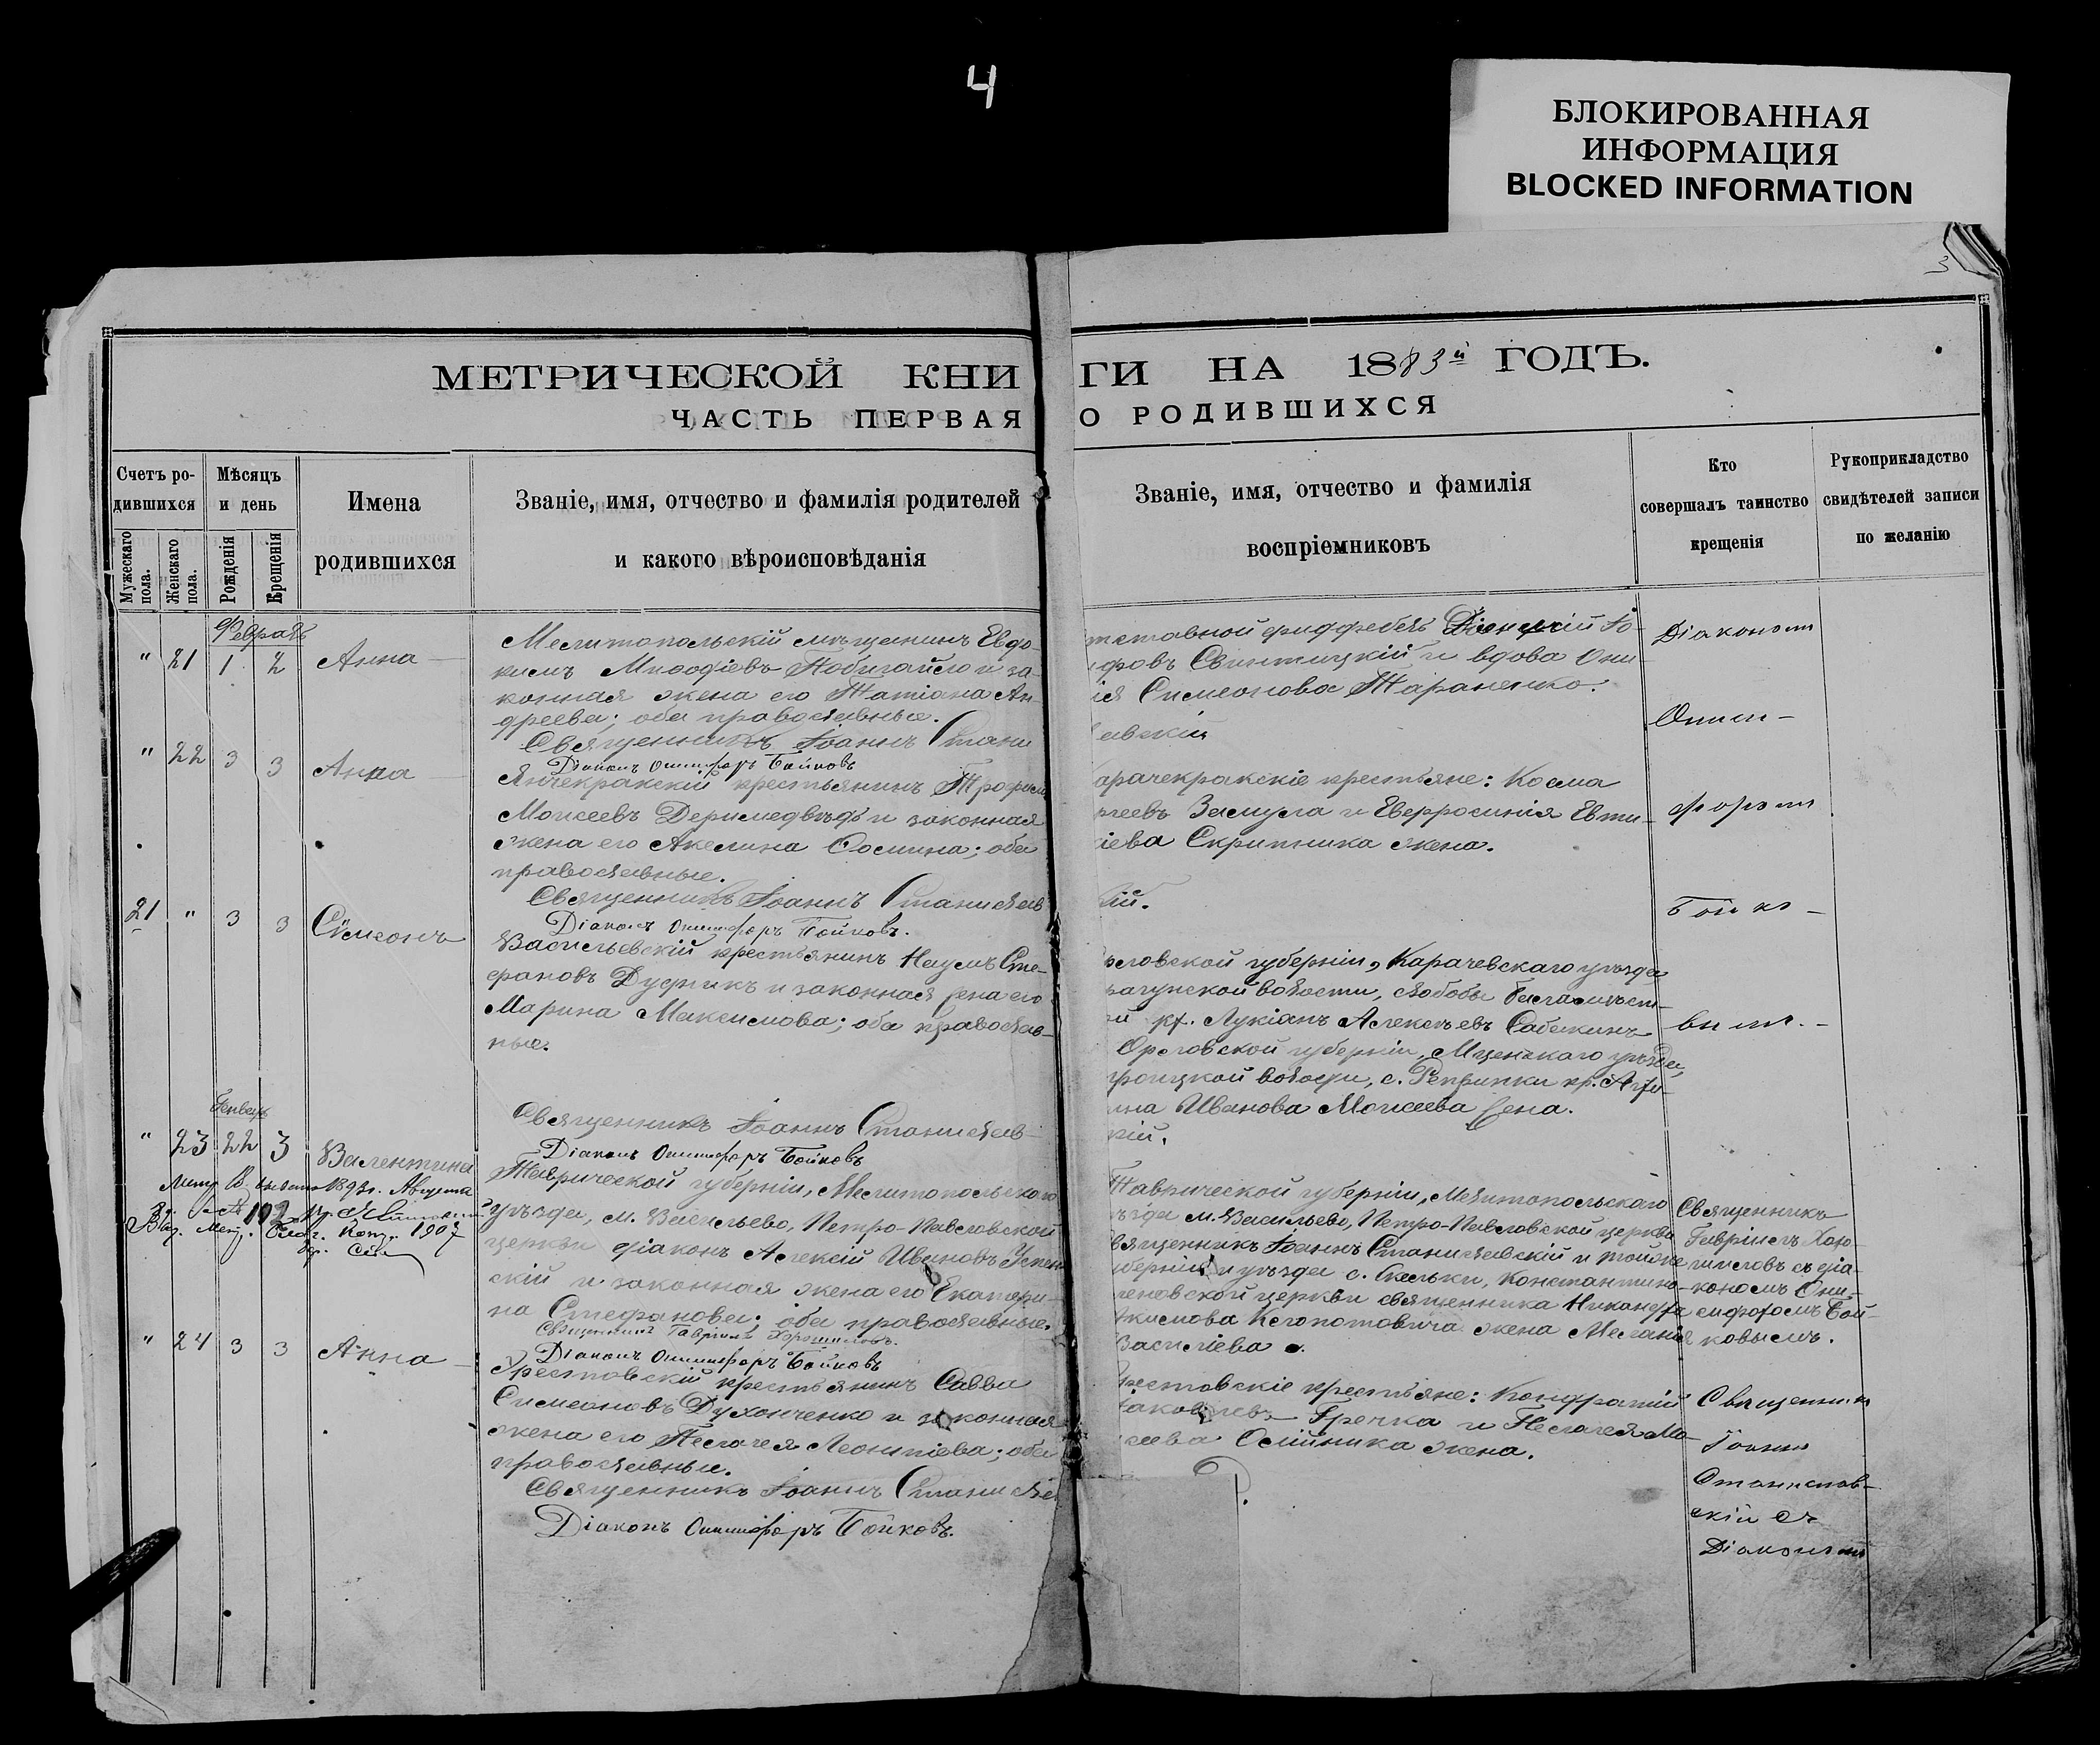 4
БЛОКИРОВАННАЯ
ИНФОРМАЦИЯ
BLOCKED INFORMATION
3
МЕТРИЧЕСКОЙ КНИ
ГИ НА 1883й ГОДЪ.
ЧАСТЬ ПЕРВАЯ
О РОДИВШИХСЯ
Счетъ ро-
дившихся
Мужескаго пола.
Женскаго пола.
Мѣсяцъ
и день
Рожденія
Крещенія
Имена
родившихся
Званіе, имя, отчество и фамилія родителей
и какого вѣроисповѣданія
Званіе, имя, отчество и фамилія
воспріемниковъ
Кто
совершалъ таинство
крещенія
Рукоприкладство
свидѣтелей записи
по желанію
Февраль
" 21 1 2 Анна
Мелитопольскій мѣщанинъ Евдо-
кимъ Миѳодіевъ и за-
конная жена его Татіана Ан-
дреева; оба православные.
Священникъ Іоаннъ Стани
Діаконъ Онисифоръ Бойковъ
ставной фидфебель
Свинтицкій и вдова Они-
ія Симеонова Тараненко.
авскій
Діакономъ
Ониси-
" 22 3 3 Анна
Янчекракскій крестьянинъ Трофим
Моисеевъ Деримедвѣдь и законная
жена его Акелина Сомина; оба
православные.
Священникъ Іоаннъ Станислав
Діаконъ Онисифоръ Бойковъ.
арачекракскіе крестьяне: Косма
Замула и Еверросинія Евти-
іева Скрипника жена.
ій.
форомъ
Бойко-
21 " 3 3 Симеонъ
Васильевскій крестьянинъ Наумъ Сте-
фановъ Дудникъ и законная жена его
Марина Максимова; оба православ-
ные.
Священникъ Іоаннъ Станислав-
Діаконъ Онисифоръ Бойковъ
рловской губерніи, Карачевскаго уѣзда,
волости, слободы
кр. Лукіанъ Алексѣевъ Сабакинъ
Орловской губерніи, Мценскаго уѣзда,
троицкой волости, с. кр.
Иванова Моисеева жена.
кій.
вымъ.-
Генварь
" 23 22 3 Валентина
1893г. Августа
1907
Таврической губерніи, Мелитопольскаго
уѣзда, м. Васильево, Петро-Павловской
церкви діаконъ Алексій Ивановъ Успен
скій и законная жена его Екатери-
на Стефанова; оба православные.
Священникъ Гавріилъ Хорошиловъ.
Діаконъ Онисифоръ Бойковъ
Таврической губерніи, Мелитопольскаго
ѣзда м. Васильево, Петро-Павловской церкви
вященникъ Іоаннъ Станиславскій и той же
уберніи и уѣзда с. Скельки, Константино-
еновской церкви священника Никандра
жена Меланія
Василіева.
Священникъ
Гавріилъ Хоро-
шиловъ съ діа-
кономъ Они-
сифоромъ Бой-
ковымъ.
" 24 3 3 Анна
крестьянинъ Савва
Симеоновъ Духонченко и законная
жена его Пелагея Леонтіева; оба
православные.
Священникъ Іоаннъ Станислав
Діаконъ Онисифоръ Бойковъ.
крестьяне: Кондратій
Гречка и Пелагея Мо-
сеева Олійника жена.
Священник
Іоаннъ
Станислав-
скій съ
Діакономъ